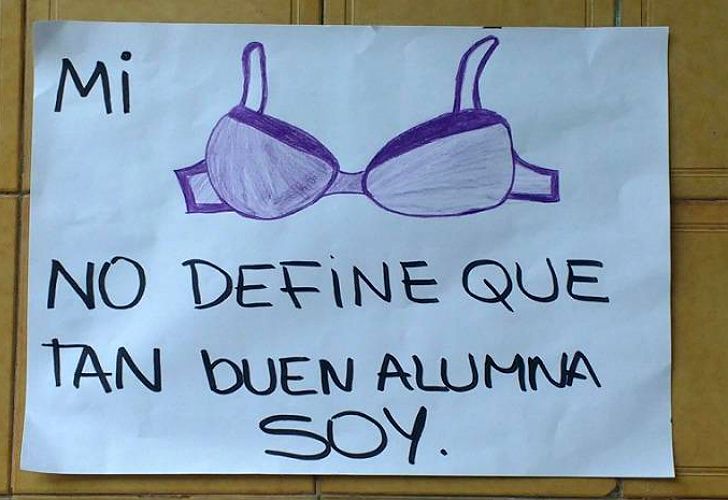 Mi
NO DEFINE QUE
TAN bUEN ALUMNA
SOY.